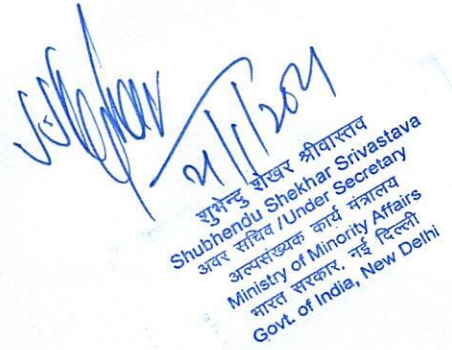 21/1/2021
शुभेन्दु शेखर श्रीवास्तव
Shubhendu Shekhar Srivastava
अवर सचिव/Under Secretary
अल्पसंख्यक कार्य मंत्रालय
Ministry of Minority Affairs
भारत सरकार, नई दिल्ली
Govt. of India, New Delhi